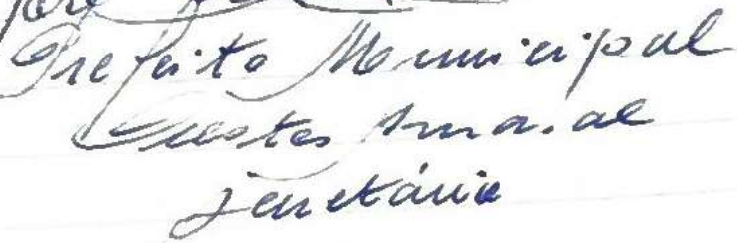 José
Prefeito Municipal
Orestes Amaral
Secretário